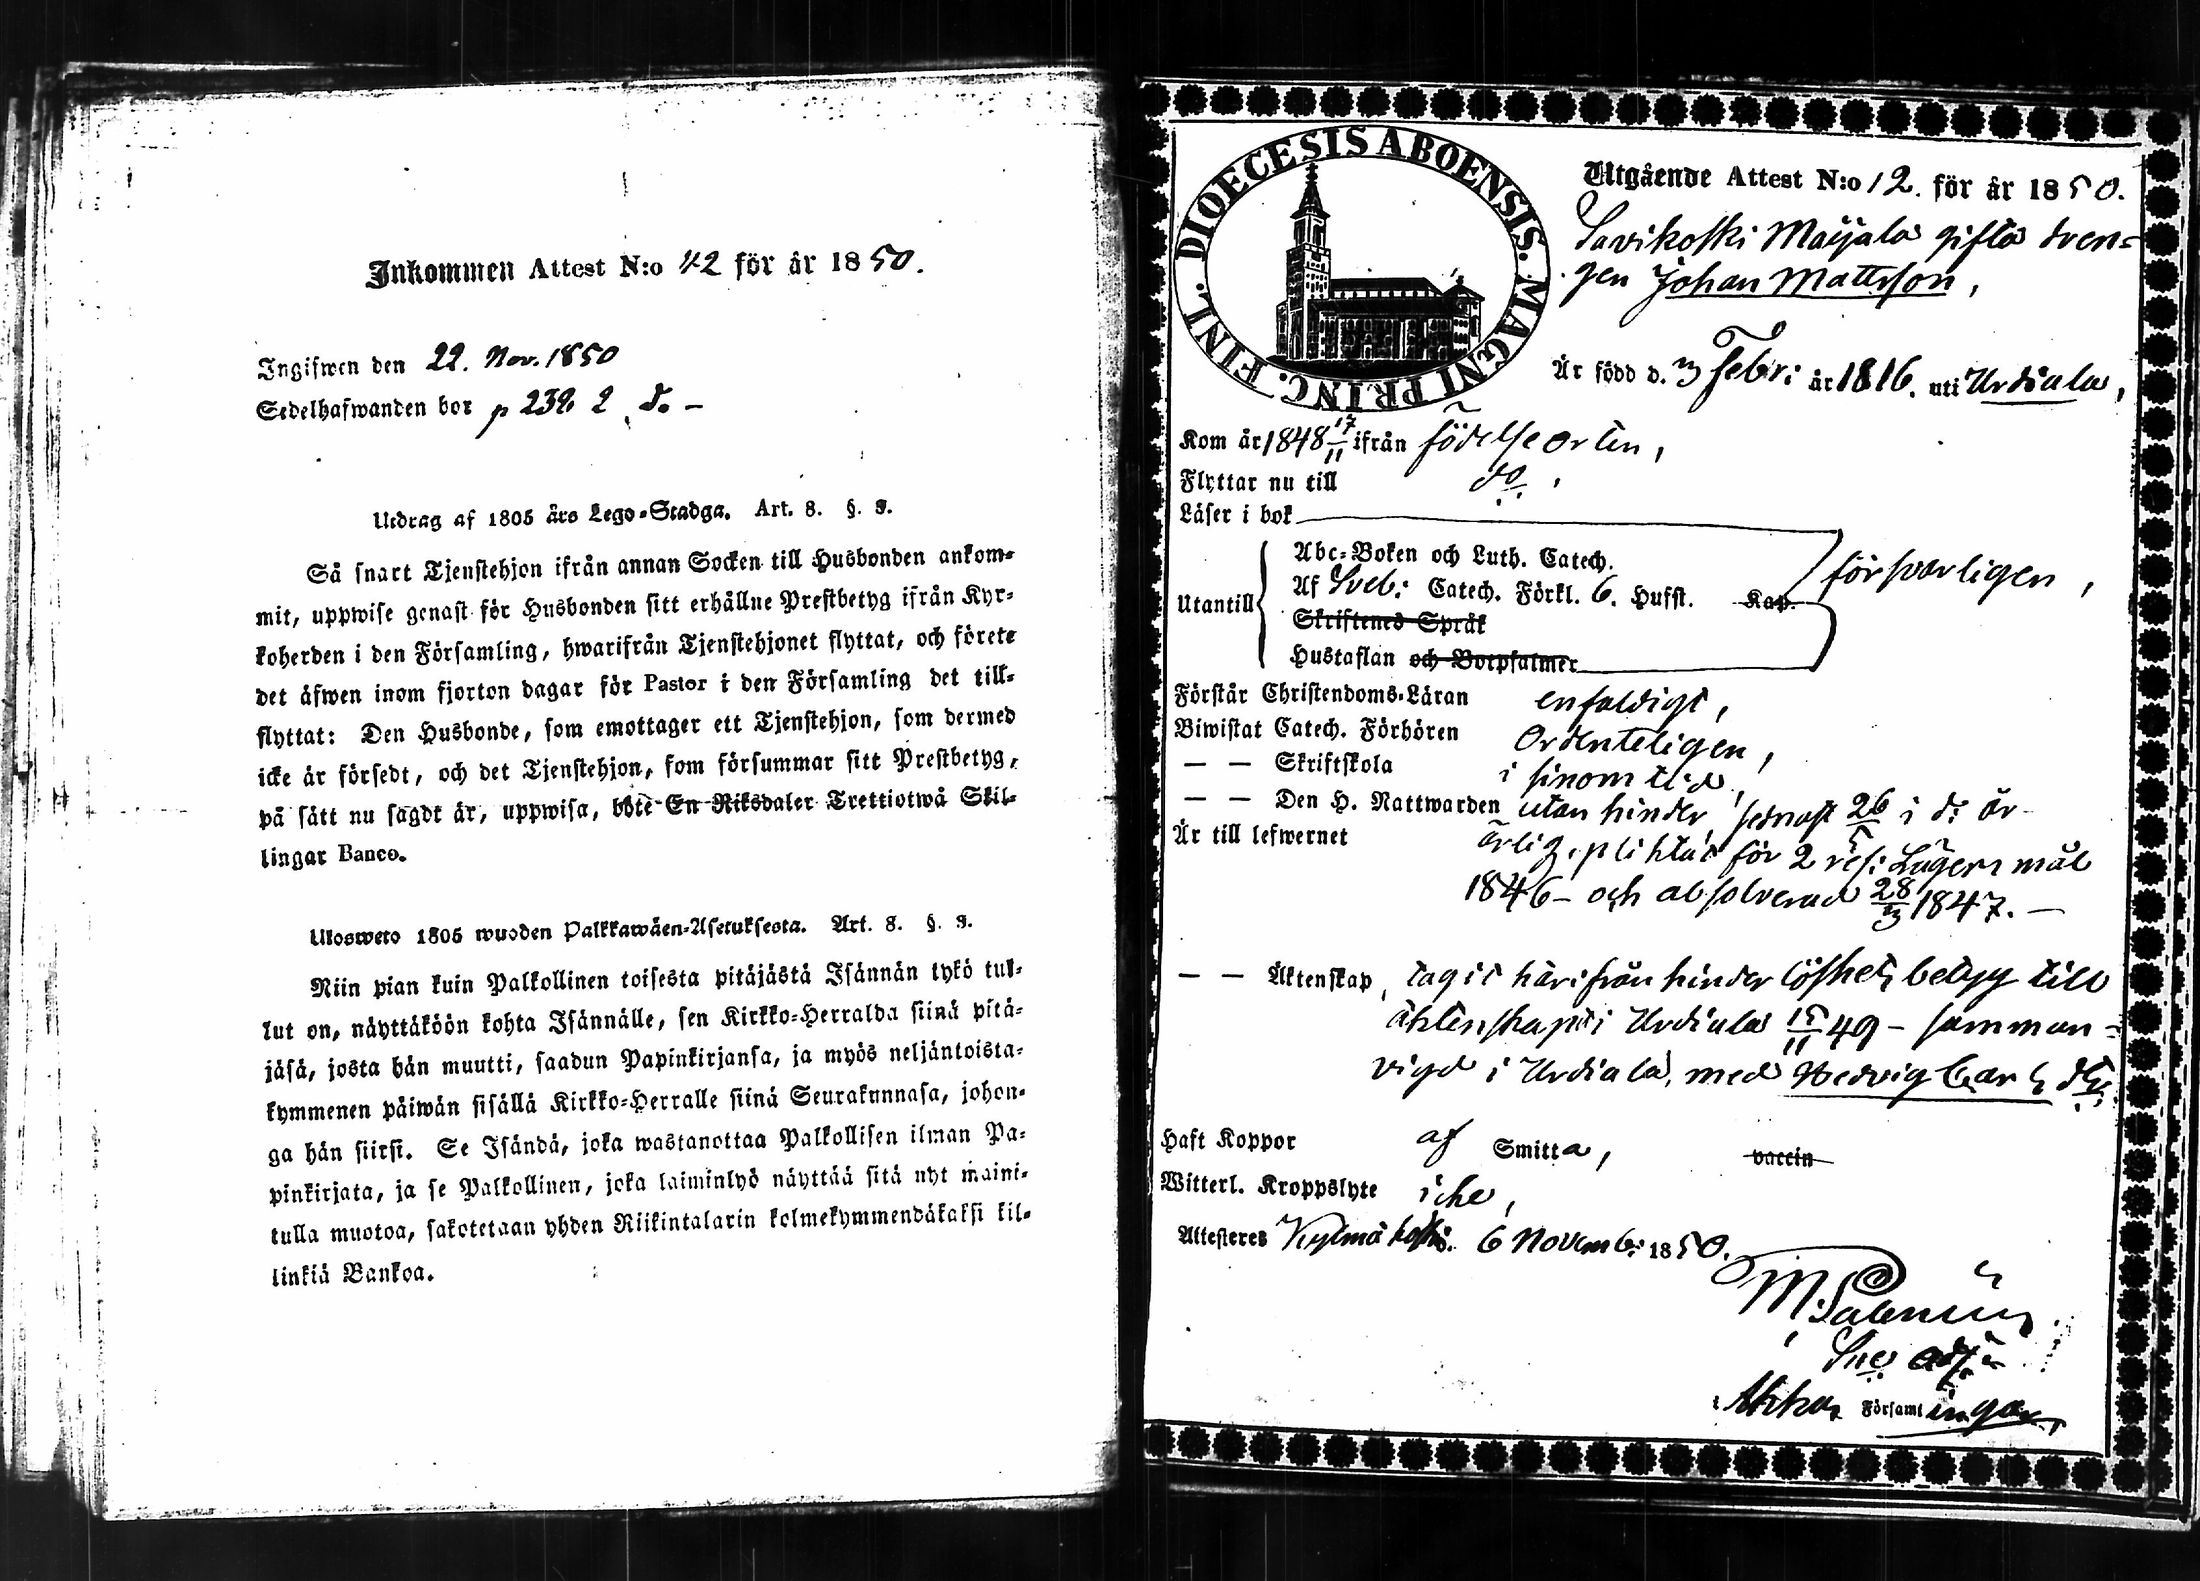 Inkommen Attest N:o 42 för år 1850.
Ingifwen den 22. Nov. 1850
Sedelhafwanden bor p 239. 2 d. –
Utdrag af 1805 års Lego-Stadga. Art. 8. §. 3.
Så snart Tjenstehjon ifrån annan Socken till Husbonden ankom-
mit, uppwise genast för Husbonden sitt erhållne Prestbetyg ifrån Kyr-
koherden i den Församling, hwarifrån Tjenstehjonet flyttat, och förete
det äfwen inom fjorton dagar för Pastor i den Församling det till-
flyttat: Den Husbonde, som emottager ett Tjenstehjon, som dermed
icke är försedt, och det Tjenstehjon, som försummar sitt Prestbetyg,
på sätt nu sagdt är, uppwisa, böte En Riksdaler Trettiotwå Skil-
lingar Banco.
Ulosweto 1805 wuoden Palkkawäen-Asetuksesta. Art. 8. §. 3.
Niin pian kuin Palkollinen toisesta pitäjästä Isännän tykö tul-
lut on, näyttäköön kohta Isännälle, sen Kirkko-Herralda siinä pitä-
jäsä, josta hän muutti, saadun Papinkirjansa, ja myös neljäntoista-
kymmenen päiwän sisällä Kirkko-Herralle siinä Seurakunnasa, johon-
ga hän siirsi. Se Isändä, joka wastanottaa Palkollisen ilman Pa-
pinkirjata, ja se Palkollinen, joka laiminlyö näyttää sitä nyt maini-
tulla muotoa, sakotetaan yhden Riikintalarin kolmekymmendäkaksi kil-
linkiä Bankoa.
DIOECESIS ABOENSIS. MAGNI PRINC. FINL.
Utgående Attest N:o 12. för år 1850.
Savikoski Maijala gifta dren-
gen Johan Mattsson,
Är född d. 3 Febr: år 1816. uti Urdiala,
Kom år 1848 17/11 ifrån födelseorten,
Flyttar nu till do.
Läser i bok
Utantill
Abc-Boken och Luth. Catech.
Af Sveb: Catech. Förkl. 6. Hufst. Kap.
försvarligen,
Skriftenes Språk
Hustaflan och Botpsalmer
Förstår Christendoms-Läran enfaldigt,
Biwistat Catech. Förhören Ordenteligen,
— — Skriftskola i sinom tid,
— — Den H. Nattwarden utan hinder, sednast 26/5 i d: år
Är till lefwernet ärlig, plihtat för 2 res: Lägersmål
1846 – och absolverad 28/3 1847. –
— — Äktenskap, tagit härifrån hinder löshets betyg till
äktenskap i Urdiala 15/11 49 – samman-
vigd i Urdiala, med Hedvig Carls dtr.
Haft Koppor af Smitta, vaccin
Witterl. Kroppslyte icke,
Attesteres Kylmäkoski. 6 Novemb: 1850.
M. Salenius
Sac. adj:
i Akkas Församlingar,